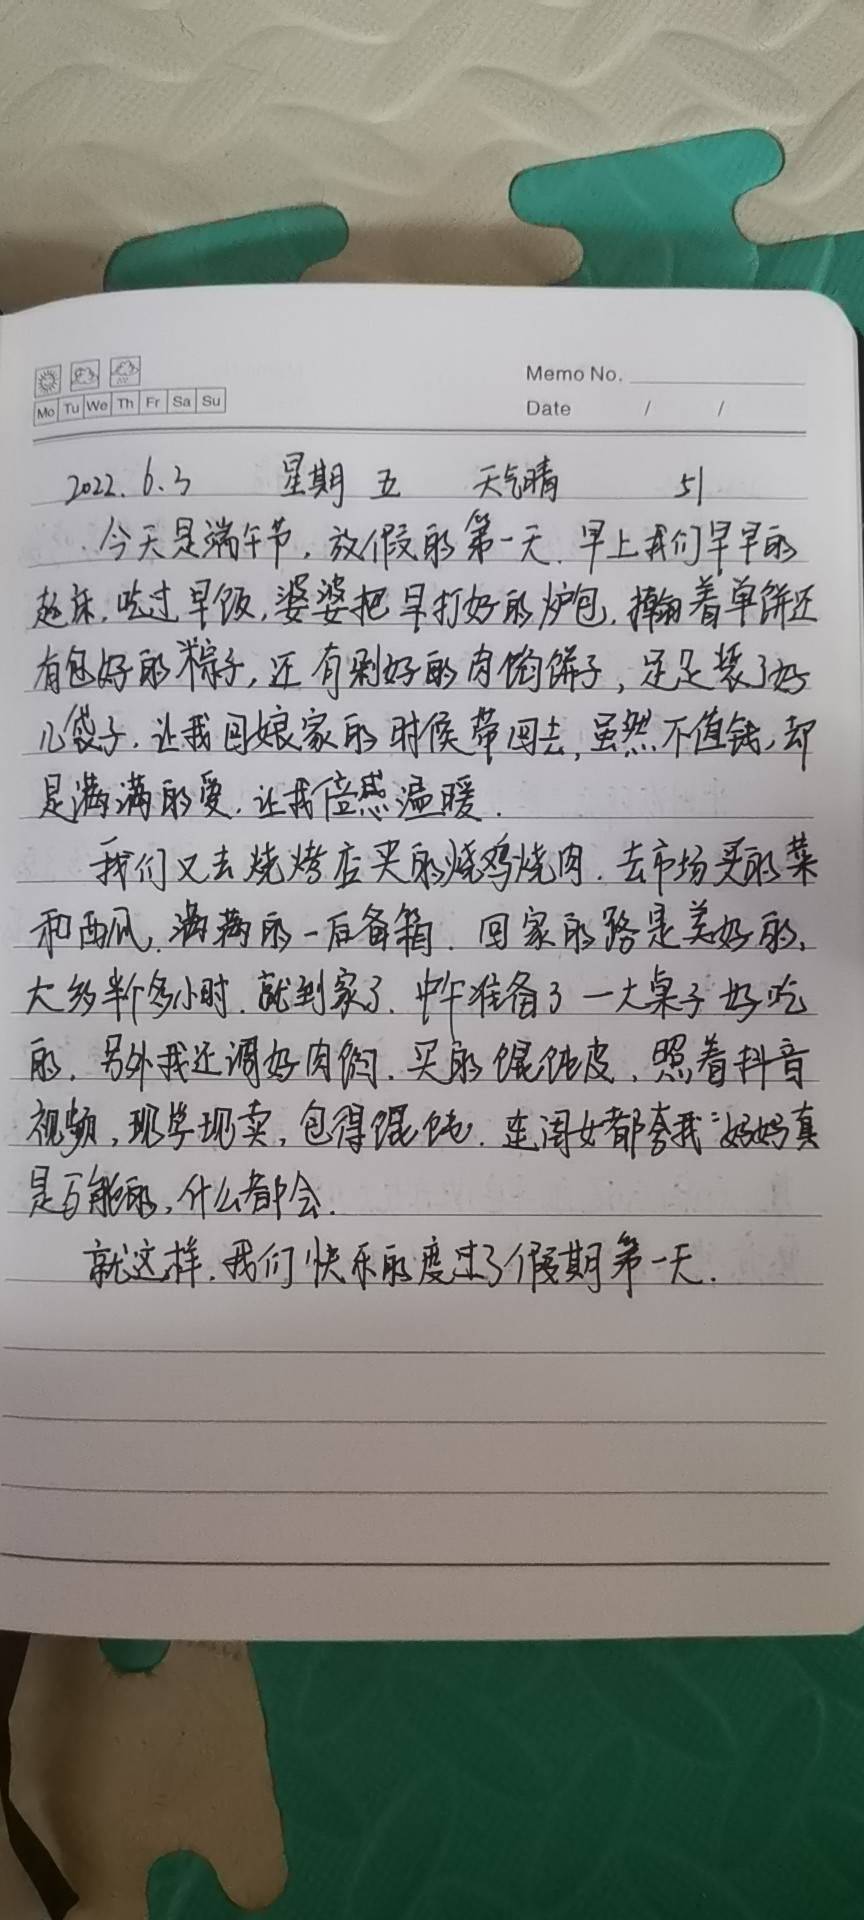 Memo No.
Mo Tu We Th Fr Sa Su
Date / /
2022.6.3 星期五 天气晴 51
今天是端午节,放假的第一天.早上我们早早的
起床,吃过早饭,婆婆把早打好的炉包,擀着单饼还
有包好的粽子,还有剁好的肉馅饼子,足足装了好
几袋子.让我回娘家的时候带回去,虽然不值钱,却
是满满的爱.让我倍感温暖.
我们又去烧烤店买的烧鸡烧肉.去市场买的菜
和西瓜,满满的一后备箱.回家的路是美好的,
大约半个多小时.就到家了.中午准备了一大桌子好吃
的,另外我还调好肉馅.买的馄饨皮,照着抖音
视频,现学现卖,包得馄饨.连闺女都夸我:妈妈真
是万能的,什么都会.
就这样.我们快乐的度过了假期第一天.